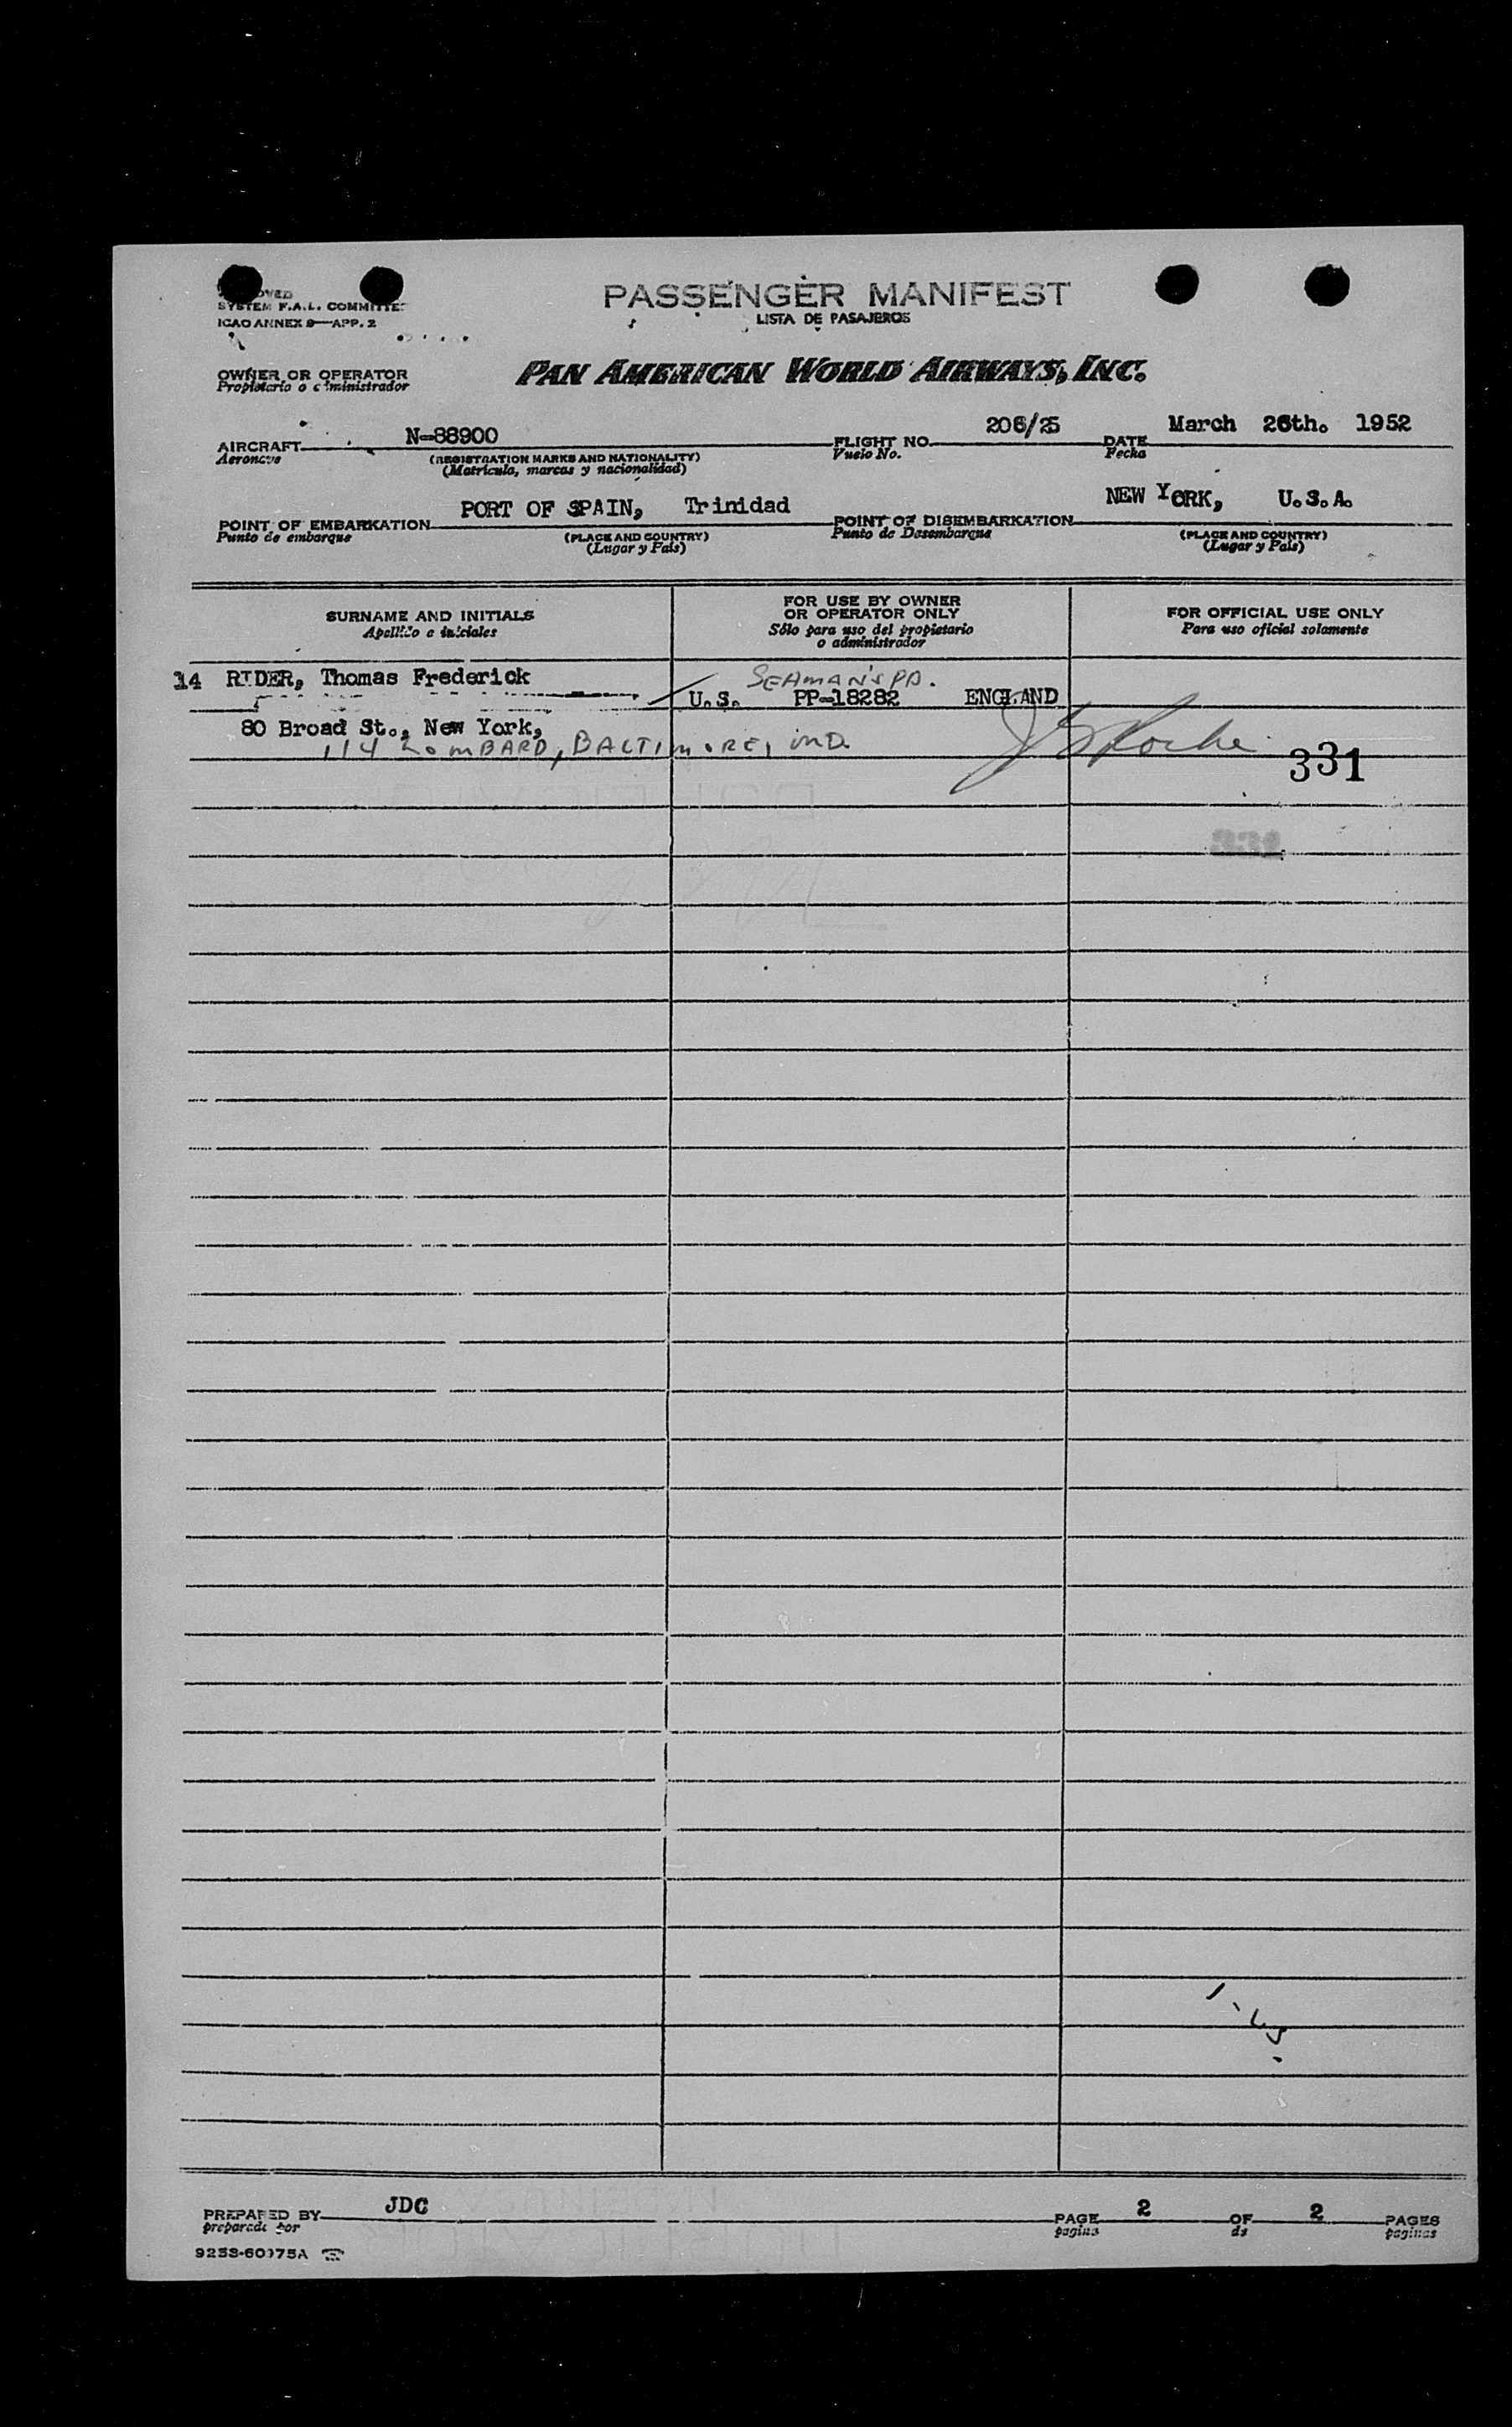 SYSTEM F.A.L. COMMITTEE
ICAO ANNEX 9—APP. 2
PASSENGER MANIFEST
LISTA DE PASAJEROS
OWNER OR OPERATOR
Propietario o administrador
PAN AMERICAN WORLD AIRWAYS, INC.
AIRCRAFT N-88900 FLIGHT NO. 206/25 DATE March 26th. 1952
Aeronave (REGISTRATION MARKS AND NATIONALITY) Vuelo No. Fecha
(Matrícula, marcas y nacionalidad)
POINT OF EMBARKATION PORT OF SPAIN, Trinidad POINT OF DISEMBARKATION NEW YORK, U.S.A.
Punto de embarque (PLACE AND COUNTRY) Punto de Desembarque (PLACE AND COUNTRY)
(Lugar y País) (Lugar y País)
SURNAME AND INITIALS FOR USE BY OWNER OR OPERATOR ONLY FOR OFFICIAL USE ONLY
Apellido e iniciales Sólo para uso del propietario o administrador Para uso oficial solamente
14 RIDER, Thomas Frederick SEAMAN'S PD.
U.S. PP-18282 ENGLAND
80 Broad St., New York,
114 LOMBARD, BALTIMORE, MD.
331
331
PREPARED BY JDC PAGE 2 OF 2 PAGES
preparado por pagina de paginas